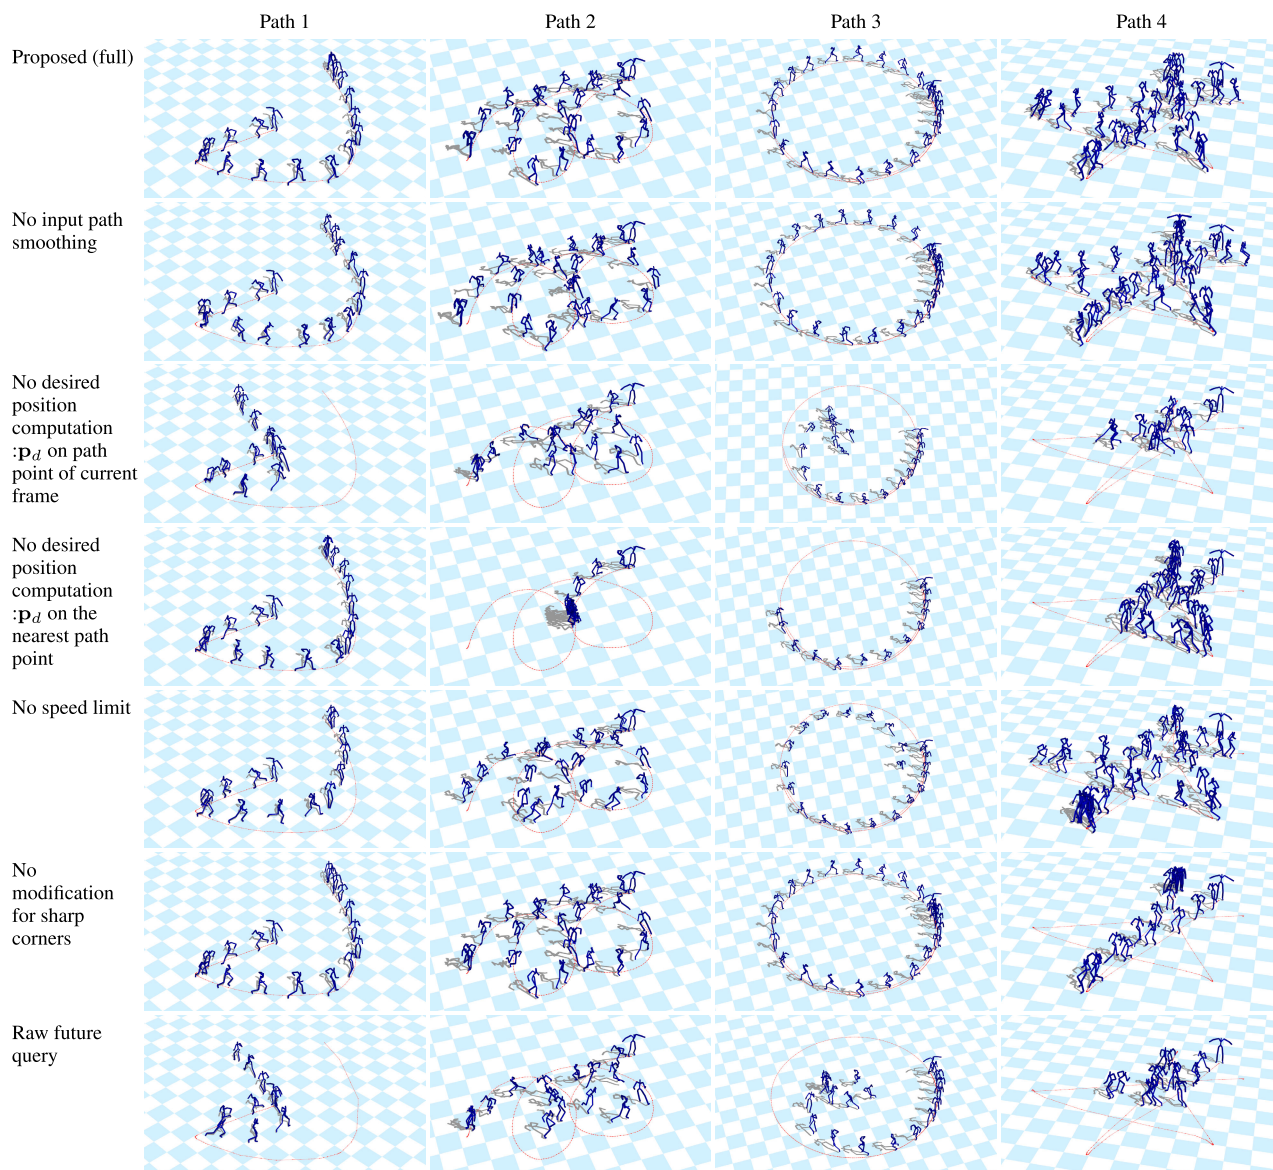 Path 1 Path 2 Path 3 Path 4
Proposed (full)
No input path
smoothing
No desired
position
computation
:p_d on path
point of current
frame
No desired
position
computation
:p_d on the
nearest path
point
No speed limit
No
modification
for sharp
corners
Raw future
query